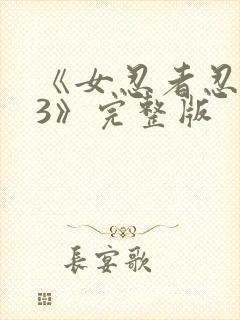 《女忍者忍
3》完整版
長宴歌